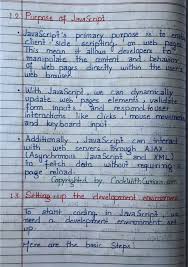 1.2. Purpose of JavaScript
• JavaScript's primary purpose is to
client side scripting, on web pages
This mean it allow developers to
manipulate the content and behavior
of web pages directly within the user's
web browser.
• With JavaScript, we can dynamically
update web page elements, validate
form input, and respond to user
interactions like clicks, mouse movements
and keyboard input.
• Additionally, JavaScript can interact
with web servers through AJAX
(Asynchronous JavaScript and XML)
to fetch data without requiring a
page reload.
Copyrighted by CodeWithCurious.com
1.3. Setting up the development environment
To start coding in JavaScript, we
need a development environment set
up.
Here are the basic Steps: